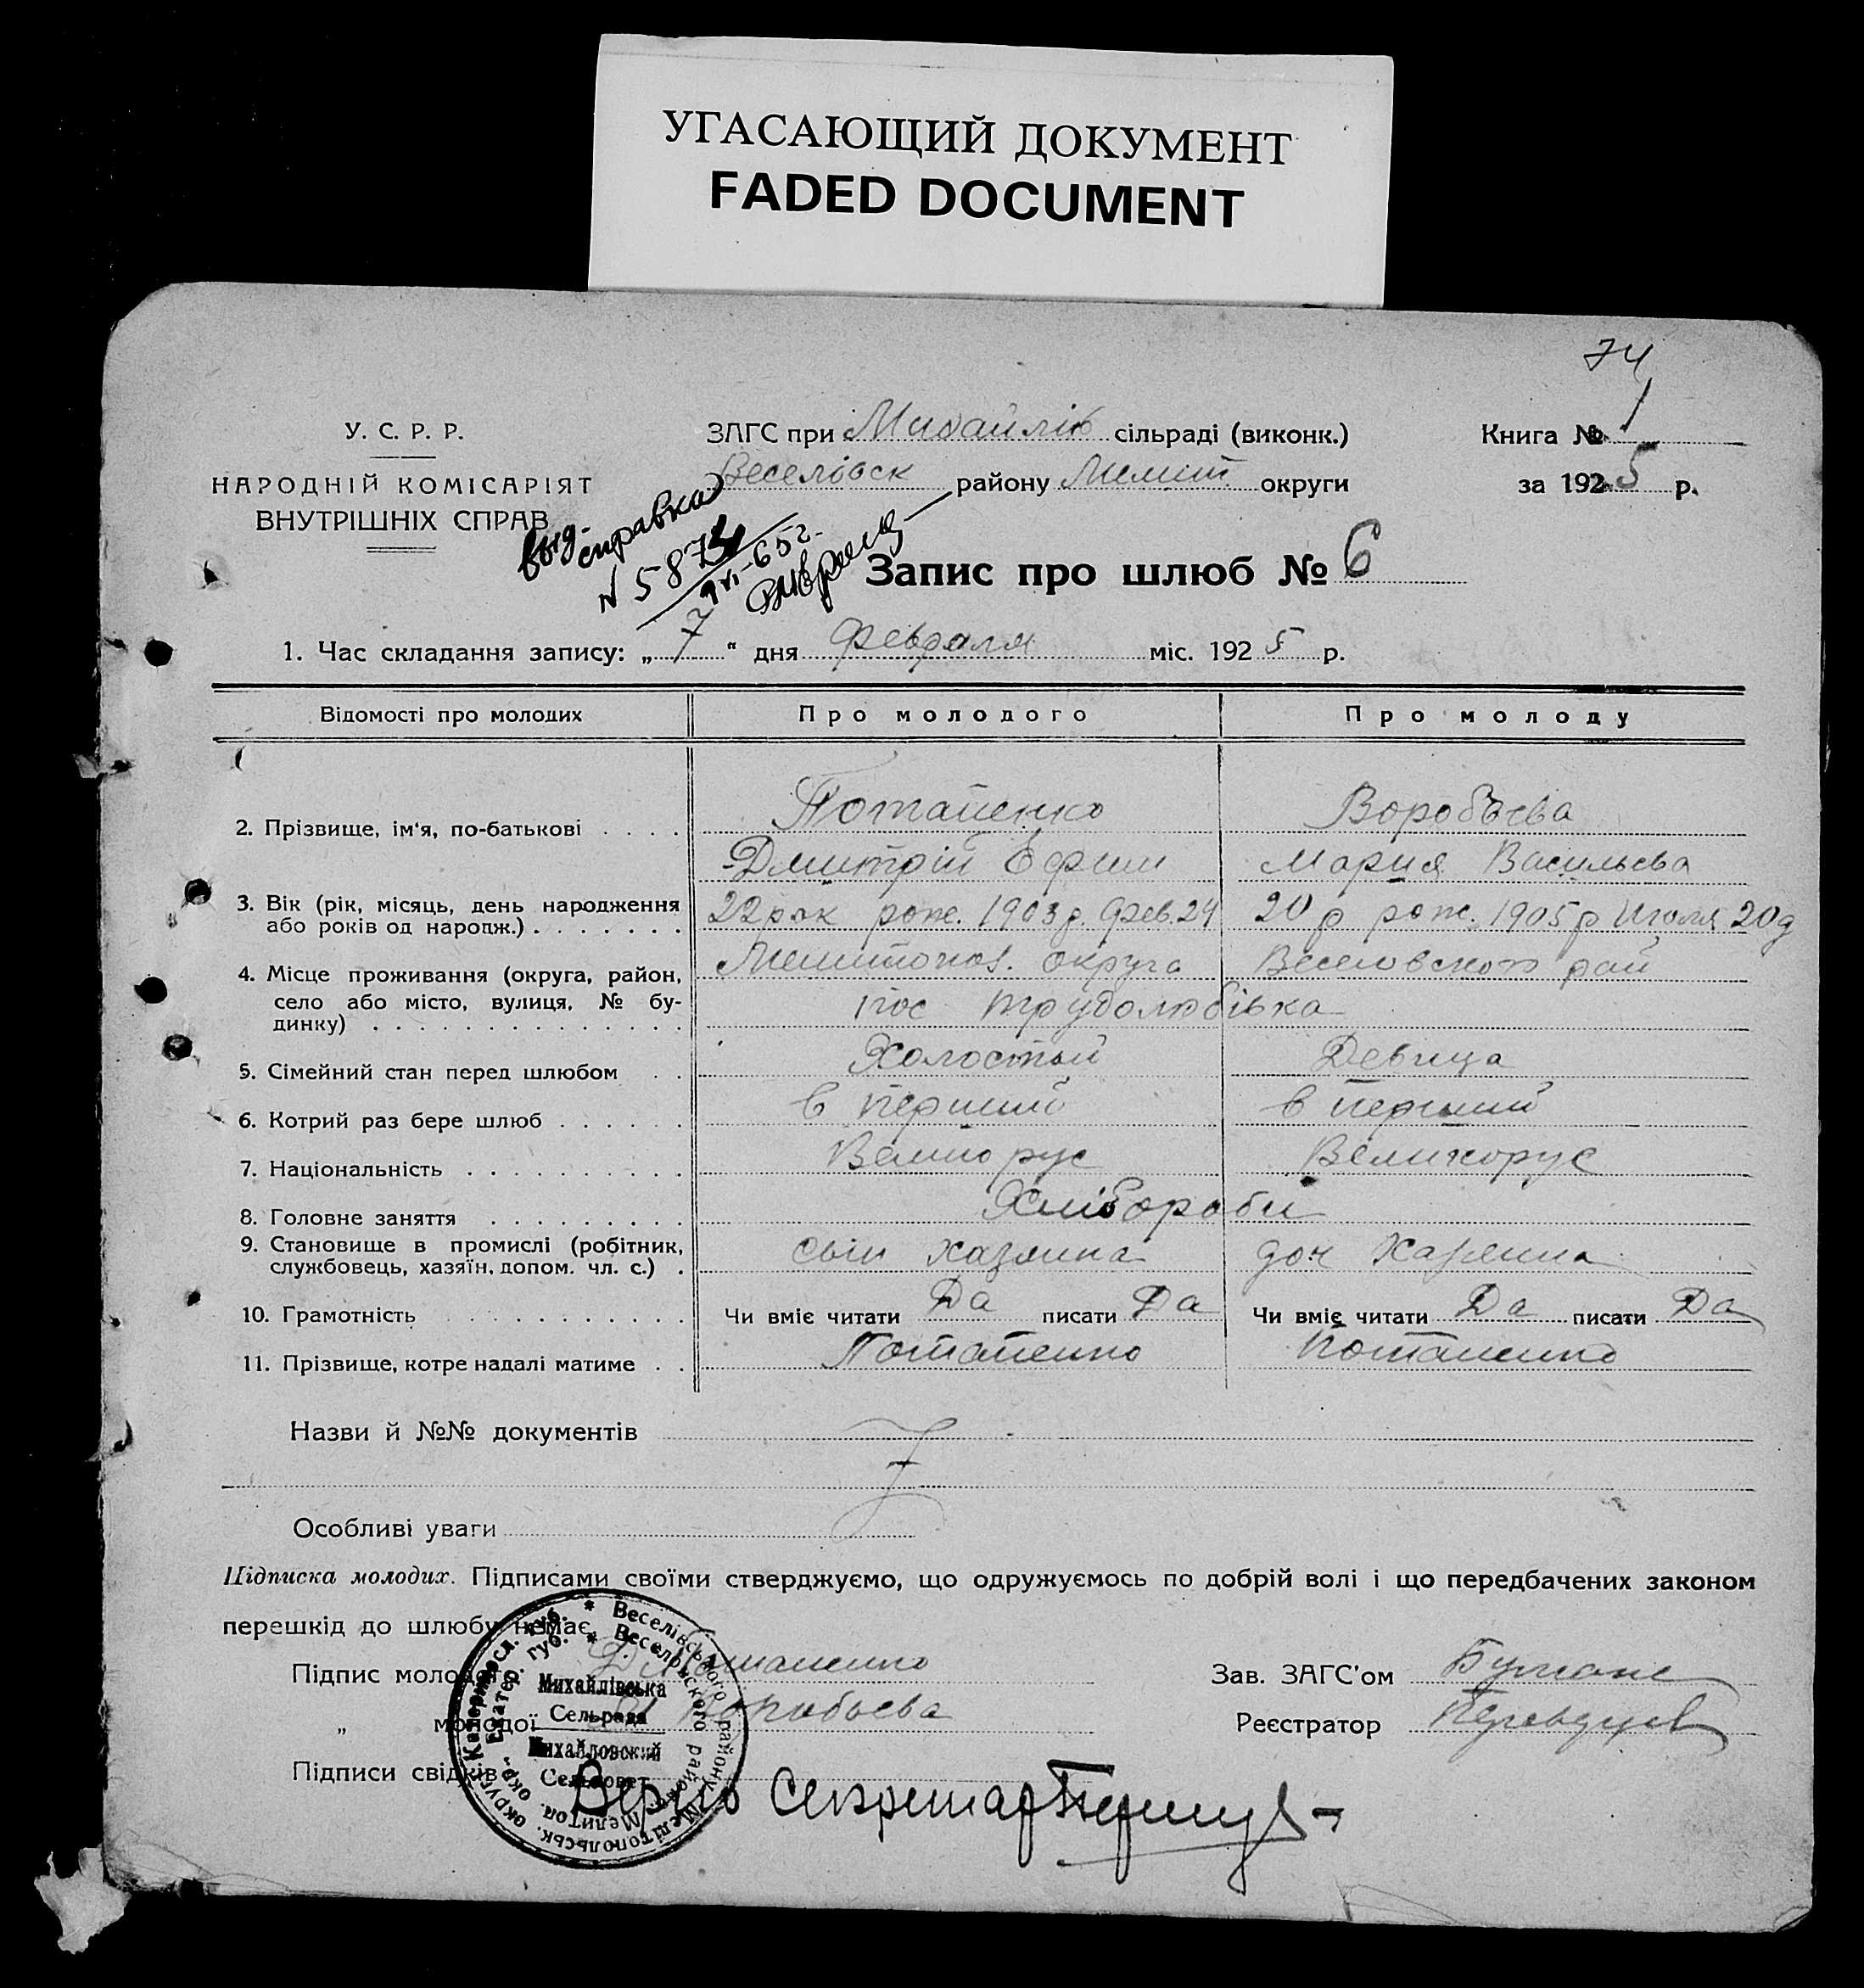 УГАСАЮЩИЙ ДОКУМЕНТ
FADED DOCUMENT
74
У. С. Р. Р.
НАРОДНІЙ КОМІСАРІЯТ
ВНУТРІШНІХ СПРАВ
ЗАГС при Михайлів сільраді (виконк.)
Веселівск району Мелит округи
Книга № 1
за 1925 р.
выд. справка
N 5874
9/VI-65 г.
Запис про шлюб № 6
1. Час складання запису: „ 7 " дня Февраля міс. 1925 р.
Відомості про молодих Про молодого Про молоду
2. Прізвище, ім'я, по-батькові . . . . Потапенко Воробьева
Дмитрій Ефим Мария Васильева
3. Вік (рік, місяць, день народження або років од народж.) . . . . . . . 22 рок рож. 1903 г. Фев. 24 20 р рож. 1905 р Июля 20 д
4. Місце проживання (округа, район, село або місто, вулиця, № будинку) . . . . . . . . . . . . . . Мелитопол. округа Веселовского рай
пос Трудолюбівка
5. Сімейний стан перед шлюбом . . Холостый Девица
6. Котрий раз бере шлюб . . . . . . в перший в перший
7. Національність . . . . . . . . . . Великорус Великорус
8. Головне заняття . . . . . . . . . Хлібороби
9. Становище в промислі (робітник, службовець, хазяїн, допом. чл. с.) . Сын хазяина доч Хазяина
10. Грамотність . . . . . . . . . . . Чи вміє читати Да писати Да Чи вміє читати Да писати Да
11. Прізвище, котре надалі матиме . . Потапенко Потапенко
Назви й №№ документів
Особливі уваги
Підписка молодих. Підписами своїми стверджуємо, що одружуємось по добрій волі і що передбачених законом
перешкід до шлюбу немає.
Підпис молодого Д Потапенко
Зав. ЗАГС'ом
„ молодої Воробьева
Реєстратор
Підписи свідків
Верно Секретар
Катериносл. губ. * Веселівського району Мелітопольськ. округ
Екатер. губ. * Веселовского район. Мелитоп. окр.
Михайлівська
Сельрада
Михайловский
Сельсовет